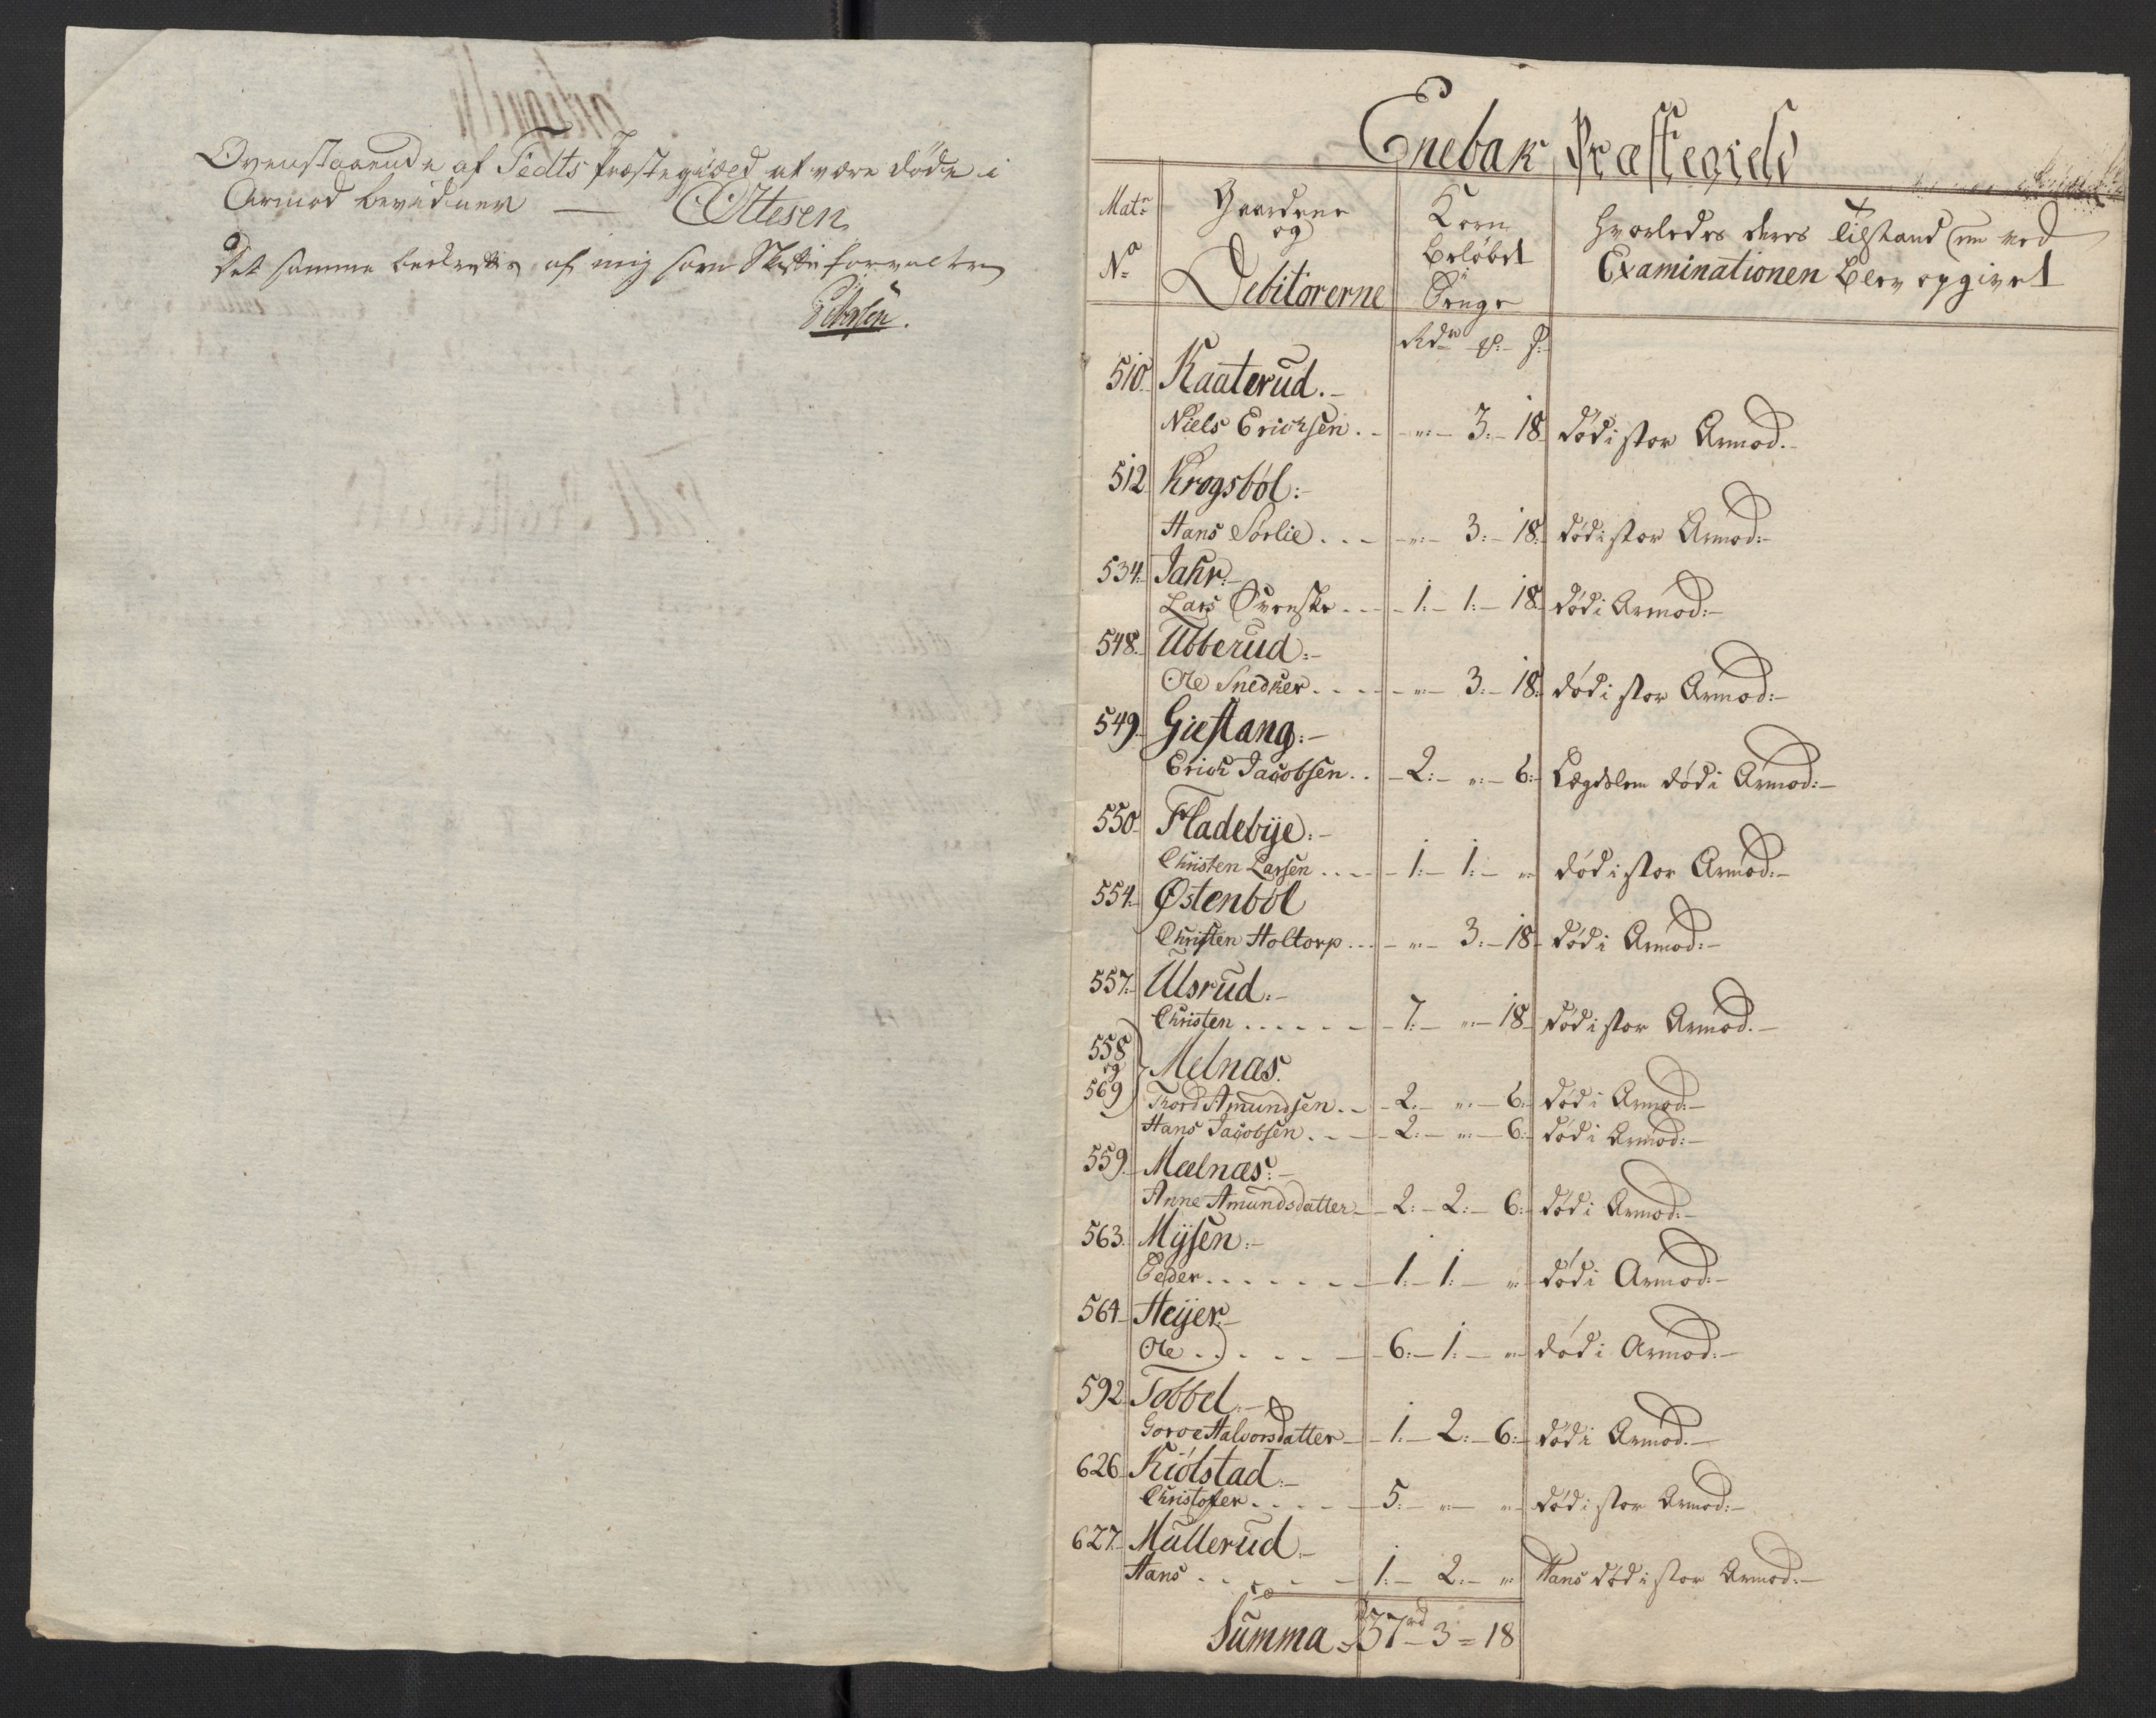 Ovenstaaende af Fedts Præstegield at være døde i
Armod bevidner — Ottesen
Det samme bekræftes af mig som Skifteforvalter
Enebak Præstegield
Matr No
Gaardene og Debitorerne
Korn beløbet i Penge
Hvorledes deres Tilstand nu ved Examinationen blev opgivet
Rdr
510. Kaaterud.-
Niels Erichsen. - ":- 3:- 18 død i stor Armod.-
512 Krogsböl:-
Hans Sörlie . . - ":- 3:- 18:- død i stor Armod:-
534. Jahr:-
Lars Svenske . . - 1:- 1:- 18:- død i Armod:-
548. Ubberud:-
Ole Snedker . . . . ":- 3:- 18:- død i stor Armod:-
549. Giestang:-
Erich Jacobsen . . - 2:- ":- 6:- Lægdslem død i Armod:-
550. Fladebÿe:-
Christen Larsen . . . - 1:- 1:- " død i stor Armod:-
554. Østenböl
Christen Holtorp . . . ":- 3:- 18- død i Armod:-
557. Ulsrud:-
Christen . . . . . . - 7:- ":- 18- død i stor Armod.-
558 og 569 Melnas.
Thord Amundsen . . - 2:- ":- 6:- død i Armod:-
Hans Jacobsen . . - 2:- ":- 6:- død i Armod:-
559. Mælnæs:-
Anne Amundsdatter - 2:- 2:- 6:- død i Armod:-
563. Mÿsen:-
Peder . . . . . . - 1:- 1:- " død i Armod:-
564 Heÿer:-
Ole . . . . . - 6:- 1:- " død i Armod:-
592. Tobbel:-
Goroe Halvorsdatter - 1:- 2:- 6:- død i Armod:-
626 Kiölstad:-
Christofer . . . . - 5:- ":- " død i stor Armod:-
627. Mullerud:-
Hans . . . . . . - 1:- 2:- " Hans død i stor Armod:-
Summa = 37rd 3 = 18